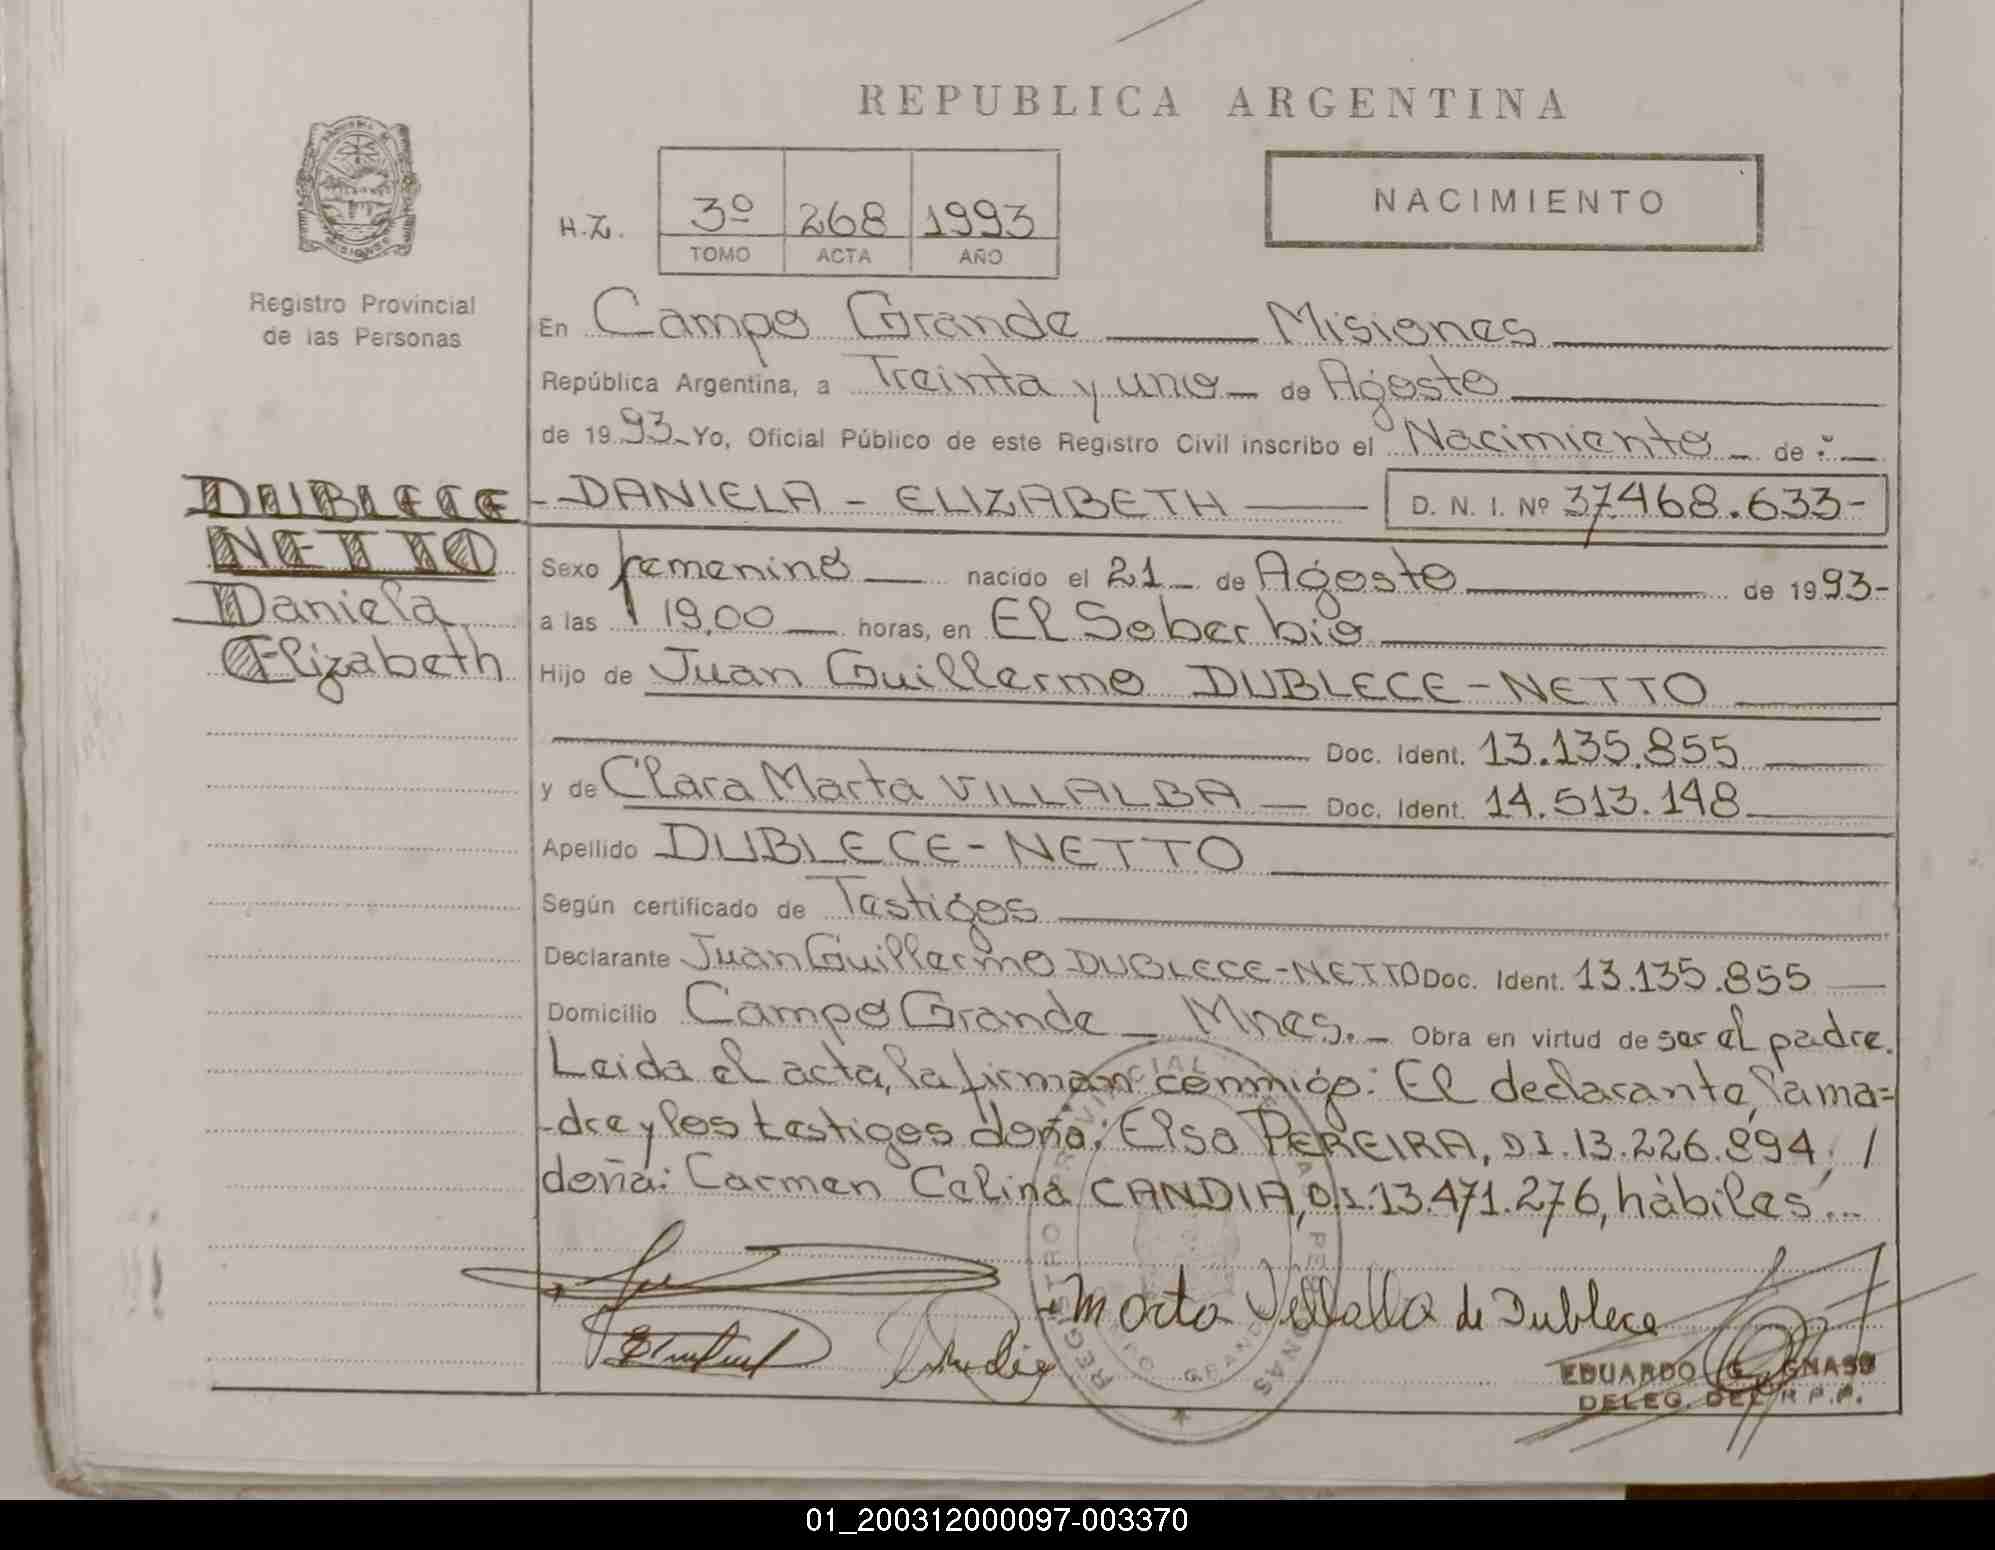 REPUBLICA ARGENTINA
NACIMIENTO
H.Z.
3º 268 1993
TOMO ACTA AÑO
PROVINCIA DE MISIONES
Registro Provincial
de las Personas
En Campo Grande Misiones
República Argentina, a Treinta y uno de Agosto
de 1993 Yo, Oficial Público de este Registro Civil inscribo el Nacimiento de:
DUBLECE
NETTO
Daniela
Elizabeth
- DANIELA - ELIZABETH D. N. I. Nº 37468.633-
Sexo femenino nacido el 21 de Agosto de 1993-
a las 19,00 horas, en El Soberbio
Hijo de Juan Guillermo DUBLECE-NETTO
Doc. Ident. 13.135.855
y de Clara Marta VILLALBA Doc. Ident. 14.513.148
Apellido DUBLECE-NETTO
Según certificado de Testigos
Declarante Juan Guillermo DUBLECE-NETTO Doc. Ident. 13.135.855
Domicilio Campo Grande - Mnes. - Obra en virtud de ser el padre.
Leida el acta, la firman conmigo: El declarante, la ma=
-dre y los testigos doña: Elsa PEREIRA, D.I. 13.226.894, /
doña: Carmen Celina CANDIA, D.I. 13.471.276, hábiles...
Marta Villalba de Dublece
REGISTRO PROVINCIAL DE LAS PERSONAS
CAMPO GRANDE
EDUARDO G. GNASS
DELEG. DEL R.P.P.
01_200312000097-003370